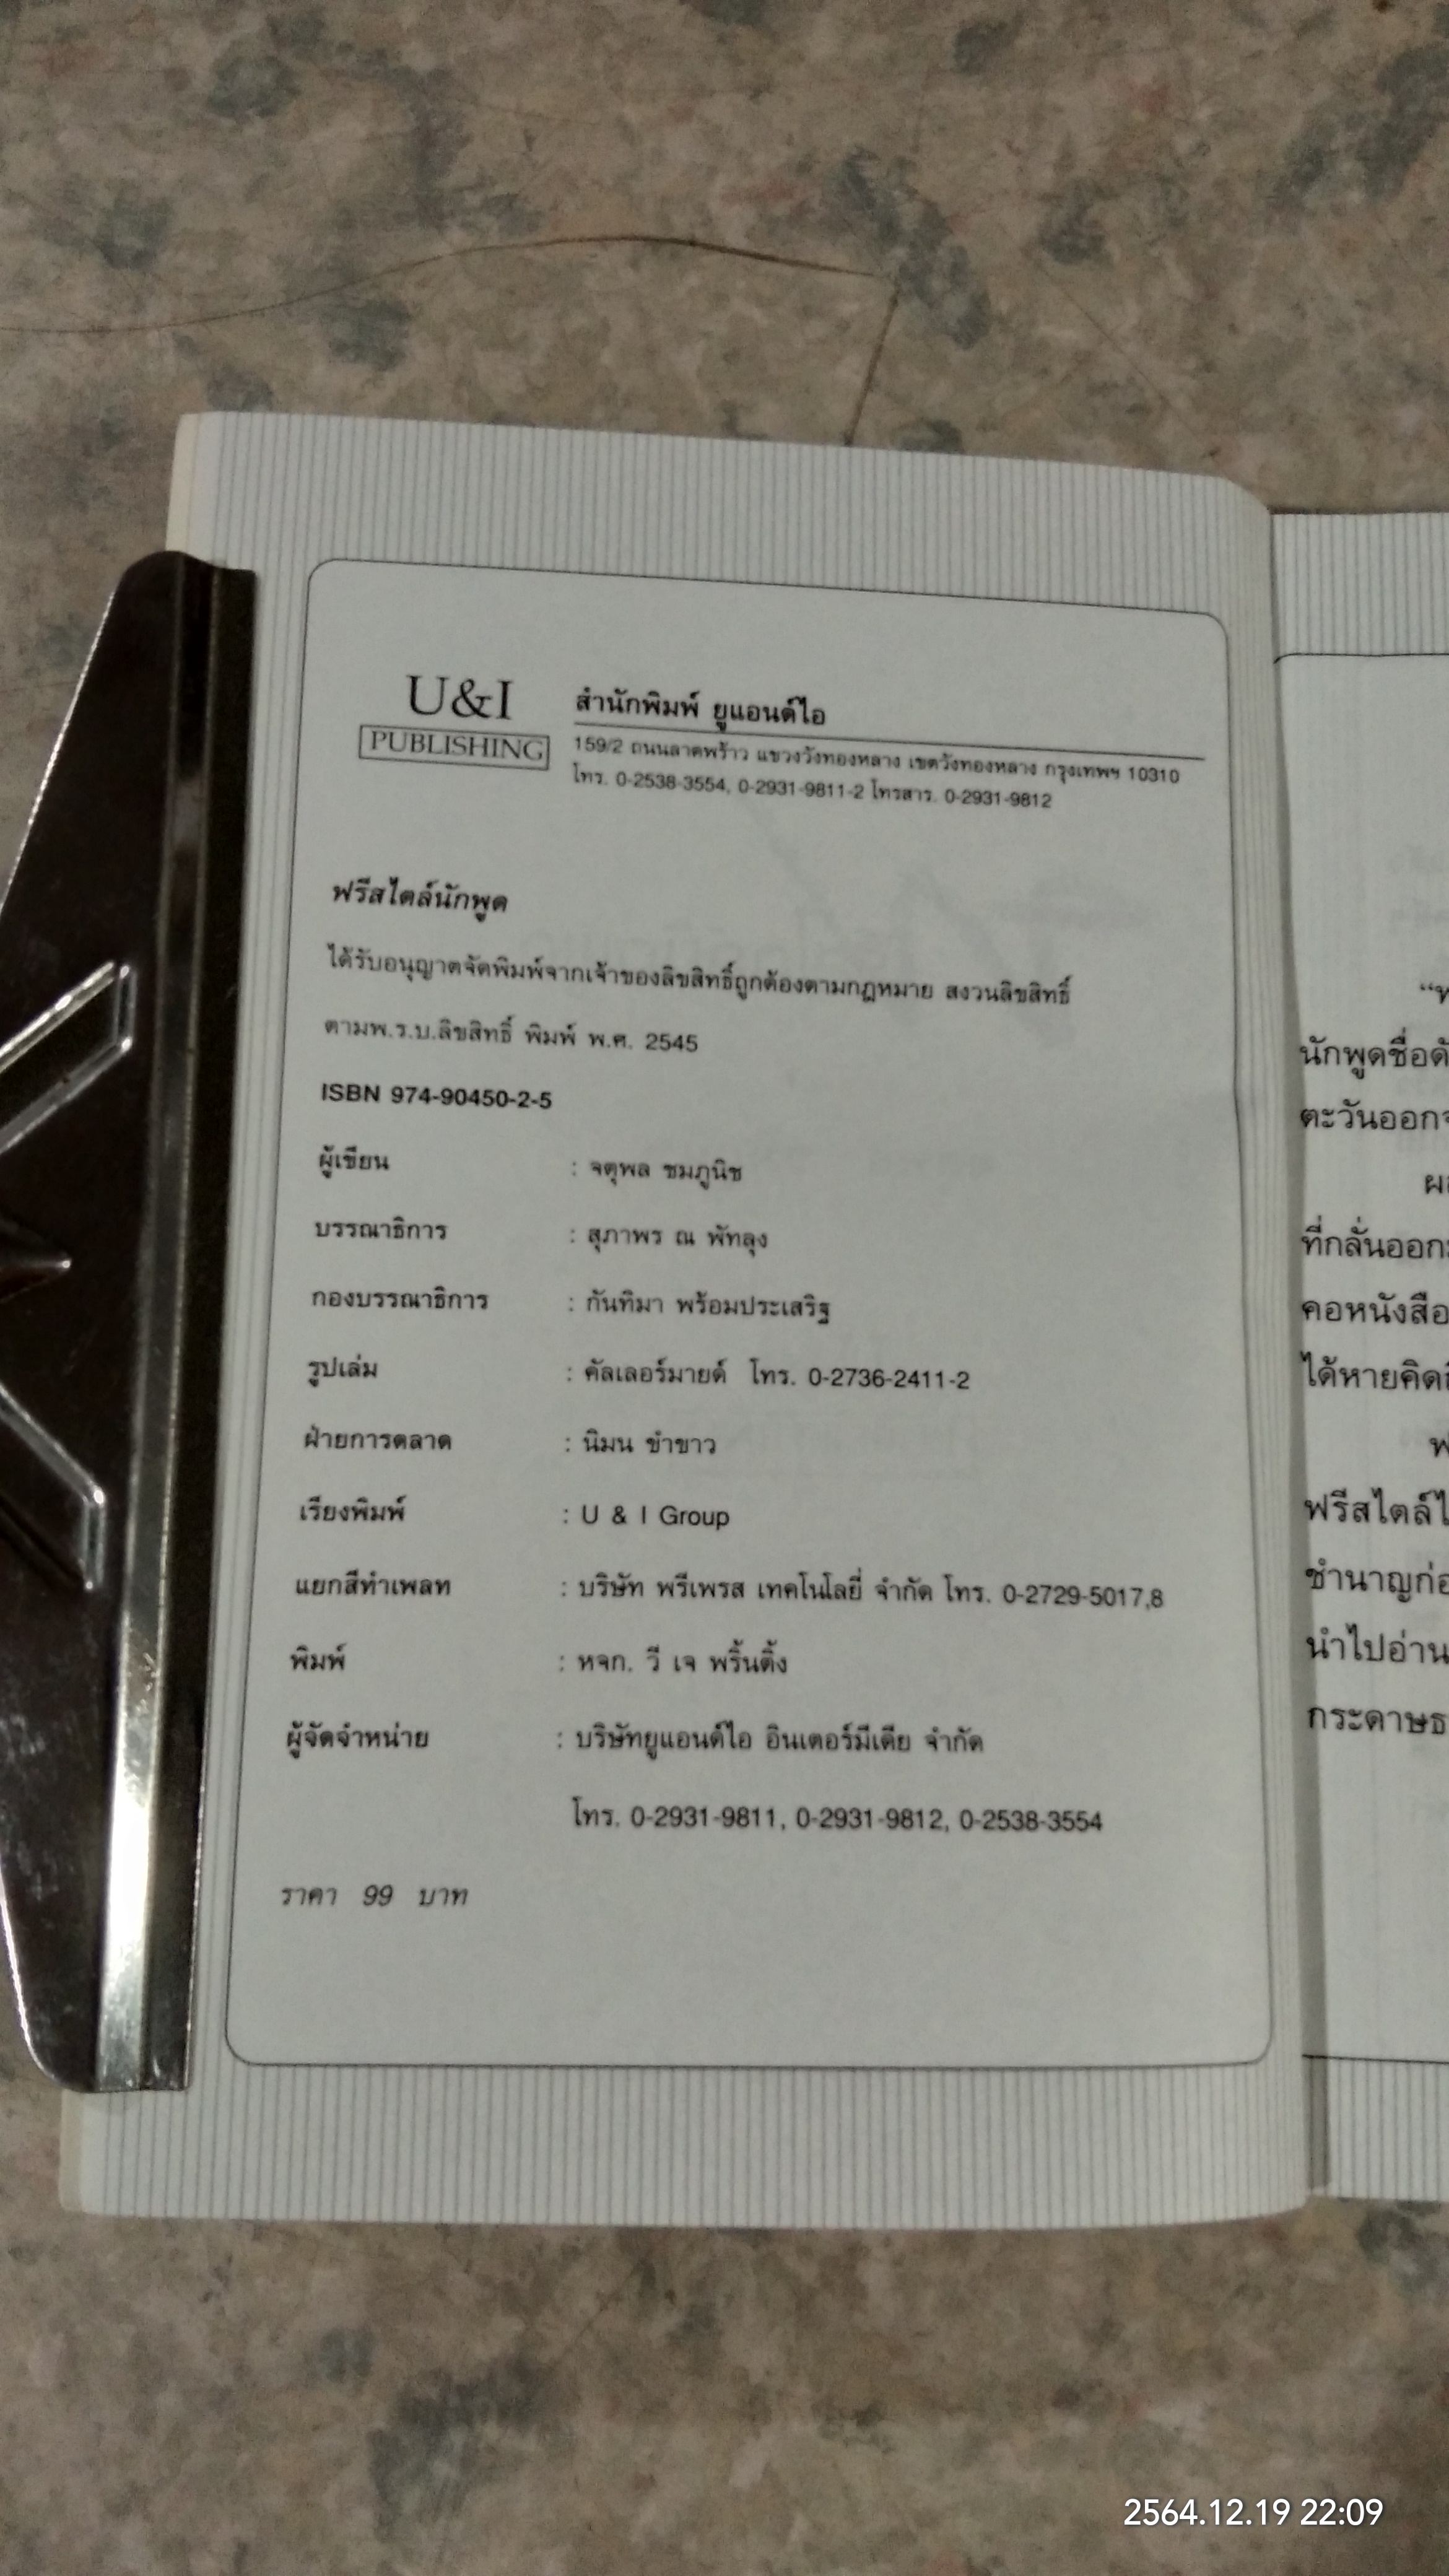 U&I
PUBLISHING
สำนักพิมพ์ ยูแอนด์ไอ
159/2 ถนนลาดพร้าว แขวงวังทองหลาง เขตวังทองหลาง กรุงเทพฯ 10310
โทร. 0-2538-3554, 0-2931-9811-2 โทรสาร. 0-2931-9812
ฟรีสไตล์นักพูด
ได้รับอนุญาตจัดพิมพ์จากเจ้าของลิขสิทธิ์ถูกต้องตามกฎหมาย สงวนลิขสิทธิ์
ตามพ.ร.บ.ลิขสิทธิ์ พิมพ์ พ.ศ. 2545
ISBN 974-90450-2-5
ผู้เขียน : จตุพล ชมภูนิช
บรรณาธิการ : สุภาพร ณ พัทลุง
กองบรรณาธิการ : กันทิมา พร้อมประเสริฐ
รูปเล่ม : คัลเลอร์มายด์ โทร. 0-2736-2411-2
ฝ่ายการตลาด : นิมน ขำขาว
เรียงพิมพ์ : U & I Group
แยกสีทำเพลท : บริษัท พรีเพรส เทคโนโลยี่ จำกัด โทร. 0-2729-5017,8
พิมพ์ : หจก. วี เจ พริ้นติ้ง
ผู้จัดจำหน่าย : บริษัทยูแอนด์ไอ อินเตอร์มีเดีย จำกัด
โทร. 0-2931-9811, 0-2931-9812, 0-2538-3554
ราคา 99 บาท
นักพูดชื่อดั
ตะวันออก
ผ
ที่กลั่นออก
คอหนังสือ
ได้หายคิด
ฟรีสไตล์ไ
ชำนาญก่
นำไปอ่าน
กระดาษธ
2564.12.19 22:09